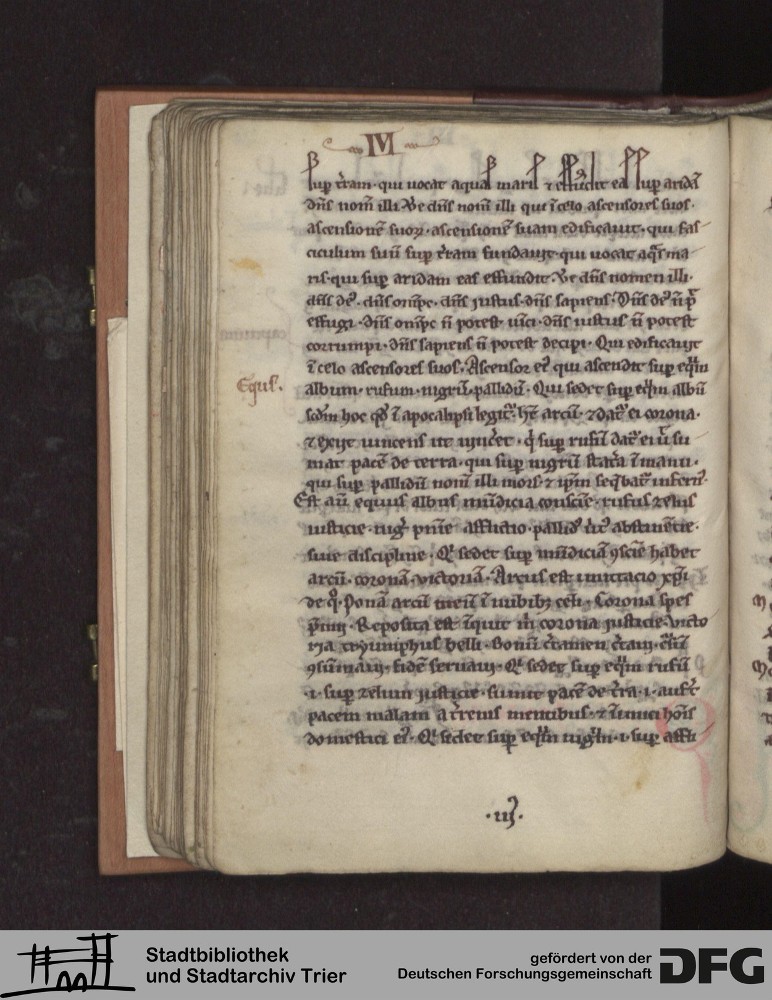 IVI
sup t̄ram· qui uocat aquas maris ⁊ effūdit eas sup aridā
dn̄s nom̄ illi. Ve dn̄s nom̄ illi qui ī celo ascensores suos·
ascensionē suoꝝ· ascensionē suam edificauit· qui fas
ciculum suū sup t̄ram fundauit· qui uocat aq̄s ma
ris· qui sup aridam eas effundit· Ve dn̄s nomen illi·
dn̄s de᷒· dn̄s om̄ipc· dn̄s iustus· dn̄s sapiens· Dn̄s de᷒ n̄ p̄t
effugi· Dn̄s om̄ipc n̄ potest uīci· dn̄s iustus n̄ potest
corrumpi· dn̄s sapiens n̄ potest decipi· Qui edificauit
ī celo ascensores suos· Ascensor ei᷒ qui ascendit sup eq̄m
Equs·
album· rufum· nigrū· pallidū· Qui sedet sup eq̄m albū
scd̄m hoc qd̄ ī apocalipsi legit᷑· ht̄ arcū· ⁊ dat᷑ ei corona·
⁊ exiit uincens ut uīcet· q̄ sup rufū dat᷑ ei ū su
mat pacē de terra· qui sup nigrū statā ī manu·
qui sup pallidū nom̄ illi mors· ⁊ ip̄m seq̄bat᷑ infern᷒·
Est aū equus albus mūdicia consciē· rufus zelus
iusticie· niḡ pn̄ie afflictio· pallid᷒ abstinētie·
siue discipline· Q̄ sedet sup mūdiciā ꝯsciē habet
arcū· coronā· victoriā· Arcus est imitacio xp̄i
de q°· Ponā arcū meū ī nubibꝫ celi· Corona spes
p̄mij· Reposita est īquit m̄ corona iusticie· Victo
ria tryumphus belli· Bonū c̄tamen c̄taui· c̄sū
ꝯsūmaui· fidē seruaui· Q̄ sedet sup eq̄m rufū
·i· sup zelum iusticie· sumit pacē de t̄ra ·i· aufert
pacem malam a t̄renis mentibus· ⁊ īimici hoīs
domestici ei᷒· Q̄ sedet sup eq̄m niḡm ·i· sup affli
·iij᷒·
Stadtbibliothek
und Stadtarchiv Trier
gefördert von der
Deutschen Forschungsgemeinschaft
DFG